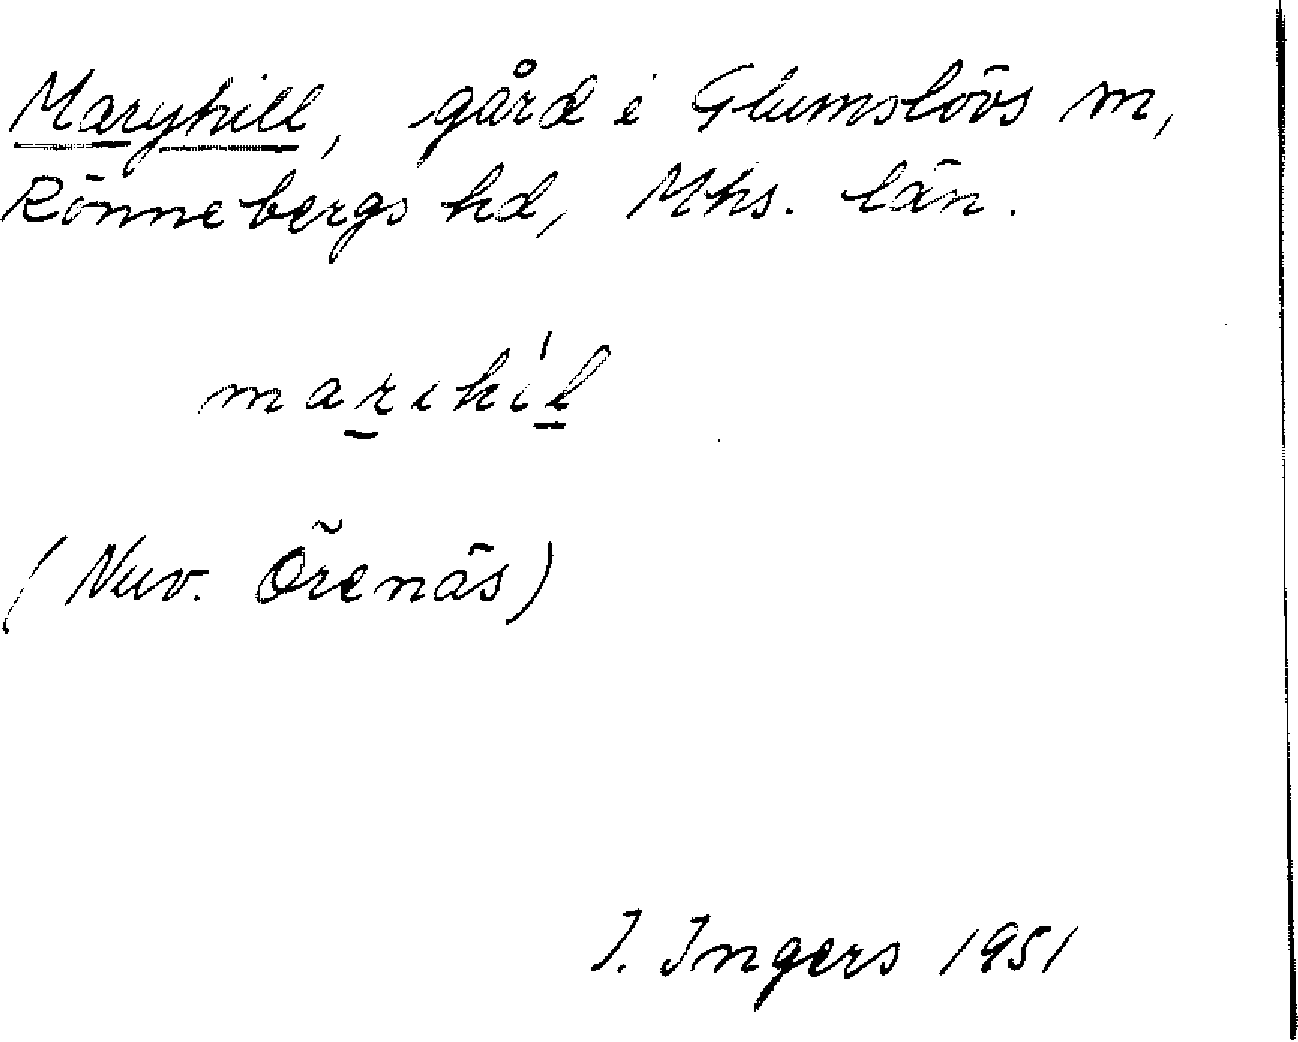 Maryhill, gård i Glumslövs sn,
Rönnebergs hd, Mhs. län.
marihi̍l
(Nuv. Örenäs)
I. Ingers 1951